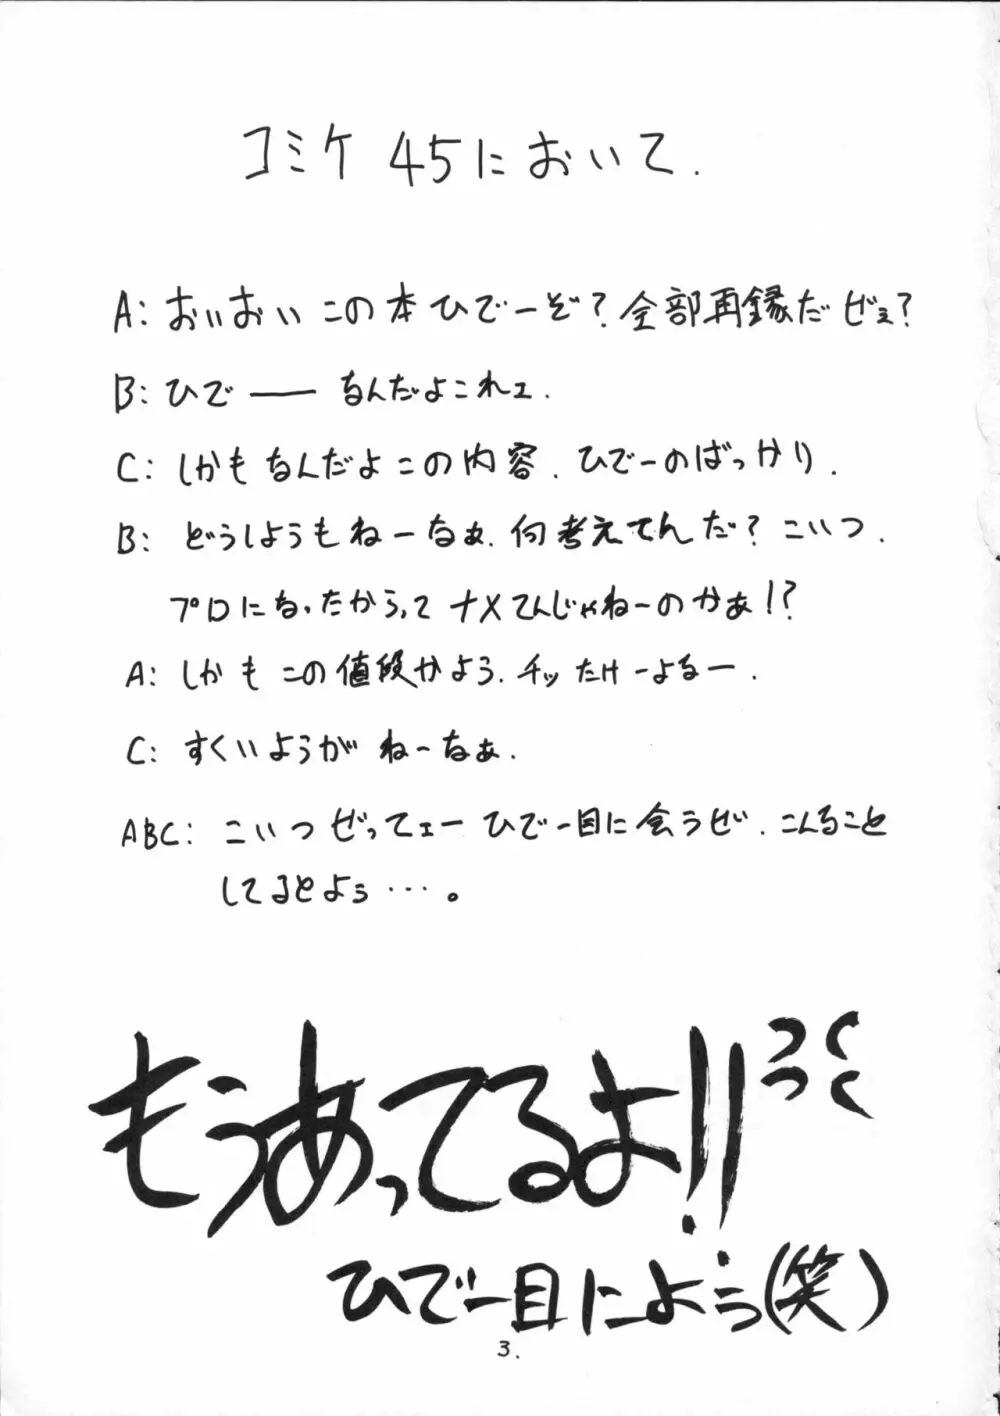 コミケ 45において.
A: おぃおぃ この本ひでーぞ？全部再録だぜぇ？
B: ひで── なんだよこれェ.
C: しかもなんだよこの内容. ひでーのばっかり.
B: どうしようもねーなぁ. 何考えてんだ？こいつ.
プロになったからって ナメてんじゃねーのかぁ!?
A: しかもこの値段かよう. チッ たけーよなー.
C: すくいようがねーなぁ.
ABC: こいつ ぜってェー ひでー目に会うぜ. こんなこと
してるとよぅ….。
もうあってるよ!!
つくつく
ひでー目によぅ(笑)
3.